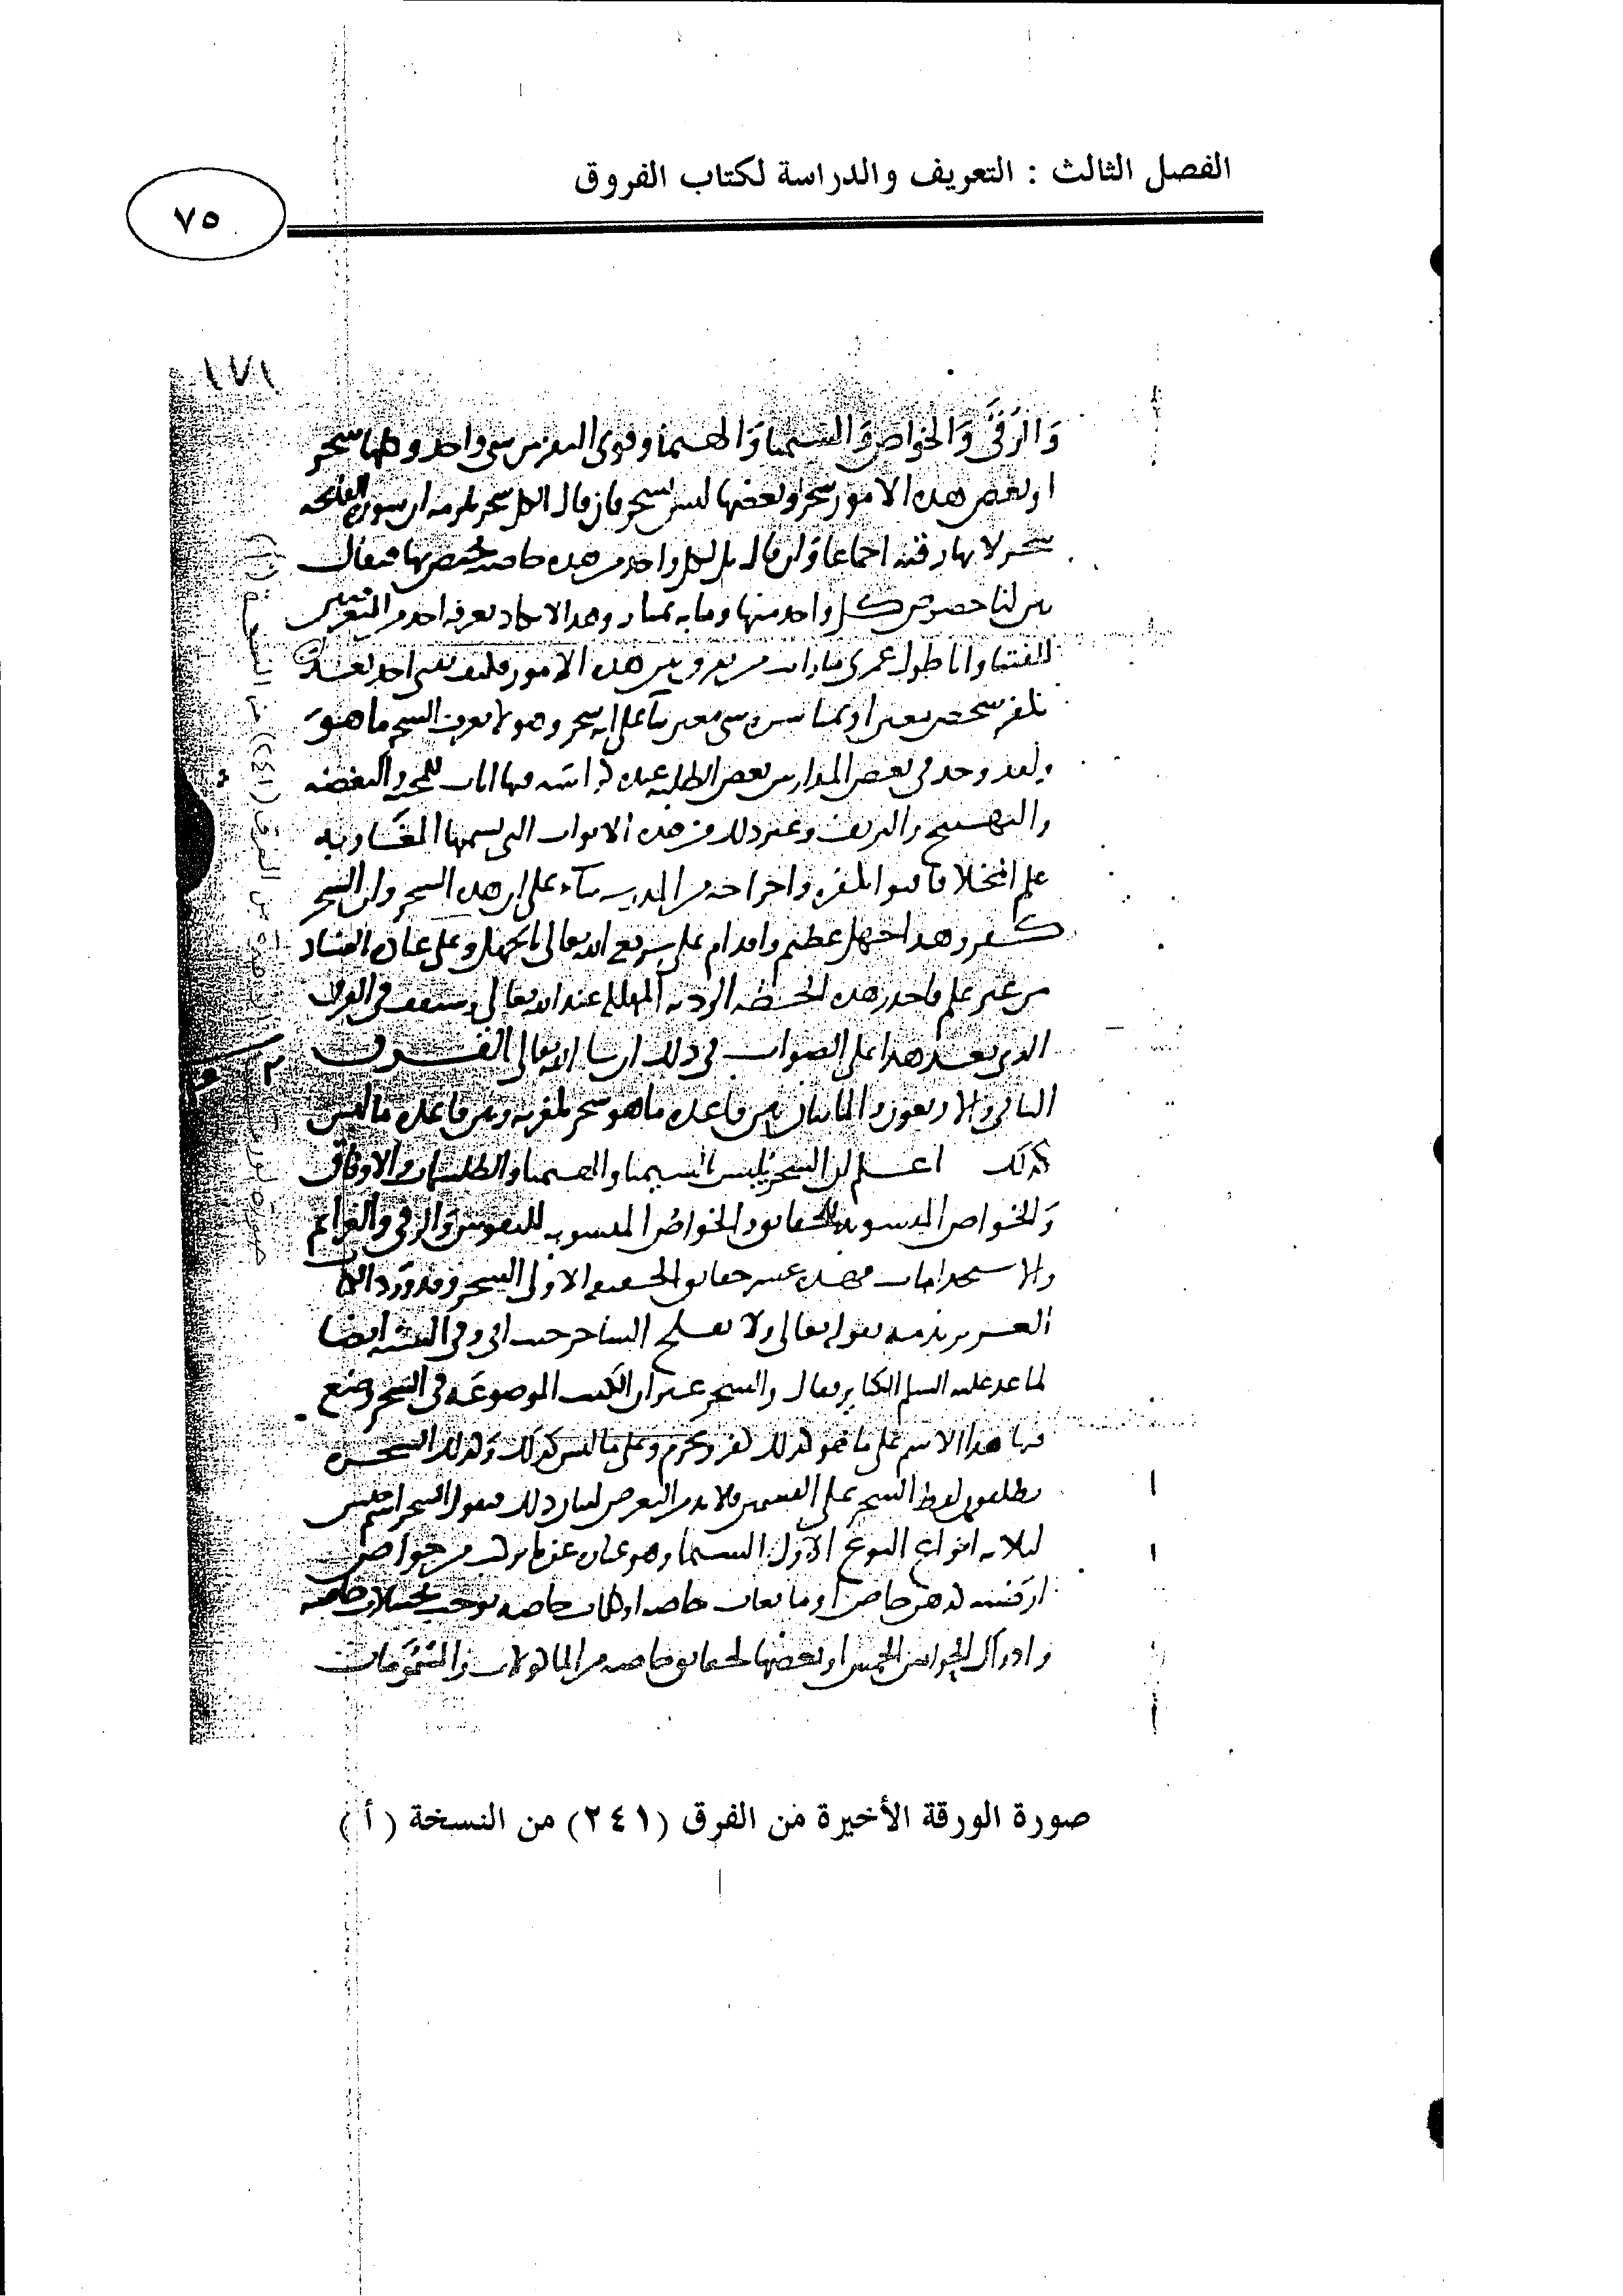 الفصل الثالث : التعريف والدراسة لكتاب الفروق
٧٥
١٧١
وَالرُقَى وَالخواص وَالسيميا وَالهيميا وقوى النفس سى واحد وكلها سحر
او بعض هذه الامور سحر وبعضها ليس بسحر فان قال الكل سحر يلزمه ان سورة الفاتحة
سحر لانها رقية اجماعا وَان قال بل لكل واحد من هذه خاصة يختص بها فيقال
بين لنا خصوص كل واحد منها وما به يمتاز وهذا لا يكاد يعرفه احد من المتعرضين
للفتيا وانا طول عمرى ما رايت من يفرق بين هذه الامور فكيف يفتى احد بعد
بكفر شخص معين او بمباشرة شى معين بنا على انه سحر وهو لا يعرف السحر ما هو
ولقد وجد فى بعض المدارس بعض الطلبة عنده فيها ايات للمحبة والبغضة
والتهييج والنزيف وغير ذلك من هذه الابواب التى يسميها المغاربة
علم المخلاة فافتوا بكفره واخراجه من المدرسة بناء على ان هذه السحر وان السحر
كفر وهذا جهل عظيم واقدام على شريعة الله تعالى بالجهل وعلى عباده بالفساد
من غير علم فاحذر هذه الخطة الردية المهلكة عند الله تعالى وستقف فى الفرق
الذى بعد هذا على الصواب فى ذلك ان شا الله تعالى الفرق
الثانى والاربعون والمايتان بين قاعدة ما هو سحر يكفر به وبين قاعدة ما ليس
كذلك اعلم ان السحر يلتبس بالسيميا والهيميا والطلسمات والاوفاق
وَالخواص المنسوبة للحقايق والخواص المنسوبة للنفوس وَالرقى والعزايم
والاستخدامات فهذه عشر حقايق الحقيقة الاولى السحر وقد ورد
العزيز بذمه بقوله تعالى ولا يفلح الساحر حيث اتى وفى السنة ايضا
لما عد عليه السلم الكباير فقال والسحر غير ان الكتب الموضوعة فى السحر وضع
فيها هذا الاسم على ما هو كذلك كفر ومحرم وعلى ما ليس كذلك وَكذلك السحرة
يطلقون لفظ السحر على القسمين فلا بد من التعرض لبيان ذلك فنقول السحر اسم جنس
لثلاثة انواع النوع الاول السيميا وهو عبارة عن ما يركب من خواص
ارضية كدهن خاص او مايعات خاصة او كلمات خاصة توجب تخيلات خاصة
وادراك الحواس الخمس او بعضها لحقايق خاصة من الماكولات والمشمومات
صورة الورقة الأخيرة من الفرق (٢٤١) من النسخة (أ)